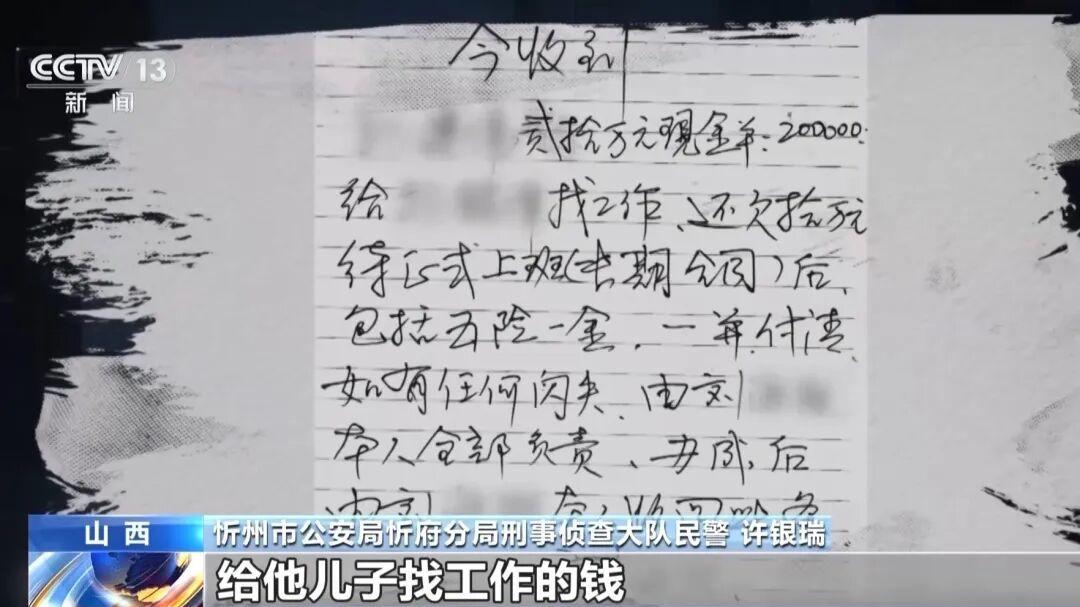 CCTV 13
新闻
今收到
贰拾万元现金单:200000.
给 找工作、还欠拾万元
待正式上班(长期合同)后、
包括五险一金、一并付清、
如有任何闪失、由刘
本人全部负责、办成后
由刘 本人收回此条
山西 忻州市公安局忻府分局刑事侦查大队民警 许银瑞
给他儿子找工作的钱